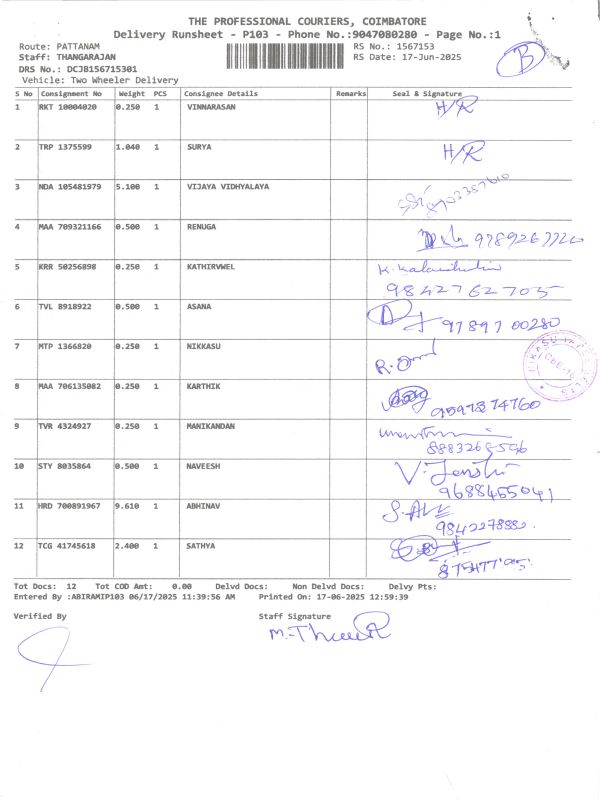 THE PROFESSIONAL COURIERS, COIMBATORE
Delivery Runsheet - P103 - Phone No.:9047080280 - Page No.:1
Route: PATTANAM RS No.: 1567153
Staff: THANGARAJAN RS Date: 17-Jun-2025
DRS No.: DCJB156715301
Vehicle: Two Wheeler Delivery
B
S No Consignment No Weight PCS Consignee Details Remarks Seal & Signature
1 RKT 10004020 0.250 1 VINNARASAN H/R
2 TRP 1375599 1.040 1 SURYA H/R
3 NDA 105481979 5.100 1 VIJAYA VIDHYALAYA
4 MAA 709321166 0.500 1 RENUGA
5 KRR 50256898 0.250 1 KATHIRVWEL
9842762705
6 TVL 8918922 0.500 1 ASANA 97897 00280
7 MTP 1366820 0.250 1 NIKKASU
8 MAA 706135082 0.250 1 KARTHIK
9597874760
9 TVR 4324927 0.250 1 MANIKANDAN
10 STY 8035864 0.500 1 NAVEESH
9688465041
11 HRD 700891967 9.610 1 ABHINAV
12 TCG 41745618 2.400 1 SATHYA
Tot Docs: 12 Tot COD Amt: 0.00 Delvd Docs: Non Delvd Docs: Delvy Pts:
Entered By :ABIRAMIP103 06/17/2025 11:39:56 AM Printed On: 17-06-2025 12:59:39
Verified By Staff Signature